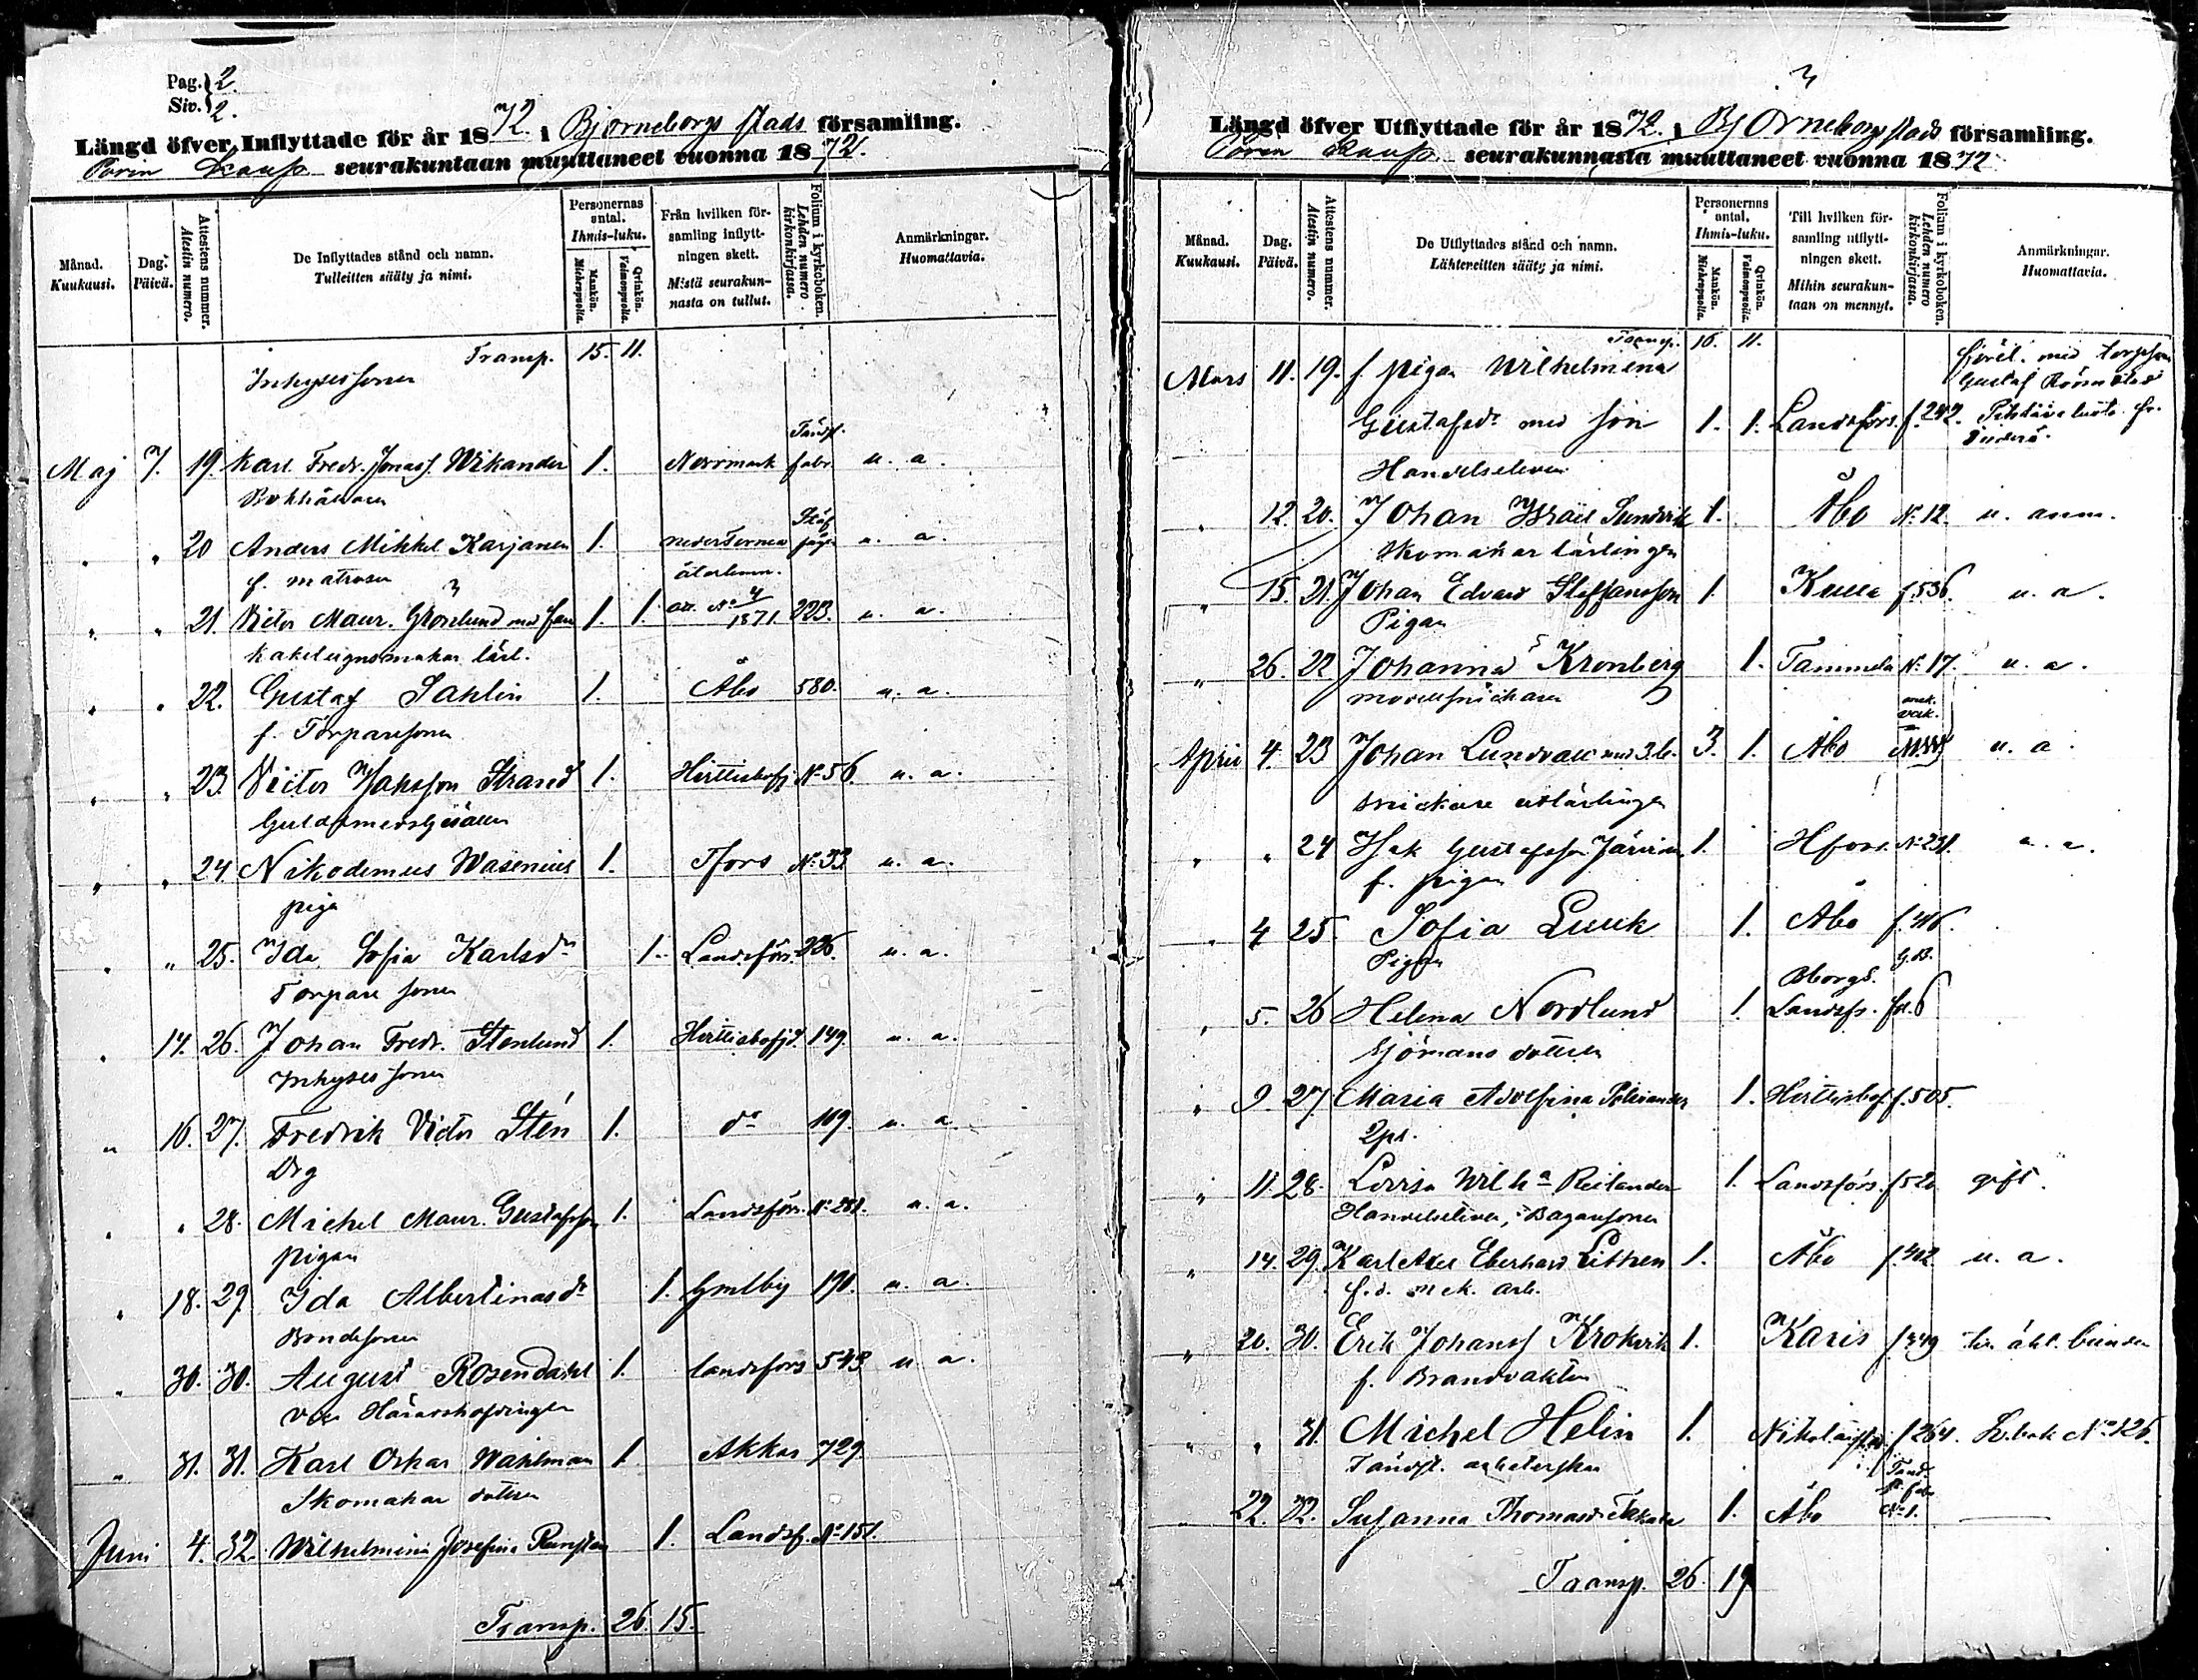 Pag. 2.
Siv. 2.
Längd öfver Inflyttade för år 1872. i Björneborgs stads församling.
Porin kaup. seurakuntaan muuttaneet vuonna 1872.
Månad. Kuukausi.
Dag. Päivä.
Attestens nummer. Atestin numero.
De Inflyttades stånd och namn. Tulleitten sääty ja nimi.
Personernas antal. Ihmis-luku.
Mankön. Miehenpuolia.
Qvinkön. Vaimonpuolia.
Från hvilken församling inflyttningen skett. Mistä seurakunnasta on tullut.
Folium i kyrkoboken. Lehden numero kirkonkirjassa.
Anmärkningar. Huomattavia.
Transp. 15. 11.
Inhyses sonen
Maj 7. 19. Karl Fredr. Jonass. Wikander 1. Norrmark Tändst. fabr. u. a.
Bokhållaren
" " 20 Anders Mikkel Karjanen 1. u. a.
f. matrosen
" " 21. Victor Maur. Grönlund med fru 1. 1. att. No 4/1871 223. u. a.
kakelugnsmakar lärl.
" " 22. Gustaf Sahlin 1. Åbo 580. u. a.
f. Torparesonen
" " 23. Victor Jaksson Strand 1. Hvittisbofj. No 56. u. a.
Guldsmedsgesällen
" " 24. Nikodemus Wasenius 1. Tfors No 33 u. a.
piga
" " 25. Ida Sofia Karlsdr 1. Landsförs. 226. u. a.
Torpare sonen
" 14. 26. Johan Fredr. Stenlund 1. Hvittisbofjd. 149. u. a.
Inhyses sonen
" 16. 27. Fredrik Victor Stén 1. do 109. u. a.
Drg
" " 28. Michel Maur. Gustafsson 1. Landsförs. No 281. u. a.
pigan
" 18. 29. Ida Albertinasdr 1. Gmlby 191. u. a.
Bondesonen
" 30. 30. August Rosendahl 1. landsförs 543 u a.
Vice Häradshöfdingen
" 31. 31. Karl Oskar Wahlman 1. Akkas 729.
Skomakar dottren
Juni 4. 32. Wilhelmina Josefina 1. Landsf. No 151.
Transp. 26. 15.
3
Längd öfver Utflyttade för år 1872. i Björneborgs stads församling.
Porin kaup. seurakunnasta muuttaneet vuonna 1872
Månad. Kuukausi.
Dag. Päivä.
Attestens nummer. Atestin numero.
De Utflyttades stånd och namn. Lähteneitten sääty ja nimi.
Personernas antal. Ihmis-luku.
Mankön. Miehenpuolia.
Qvinkön. Vaimonpuolia.
Till hvilken församling utflyttningen skett. Mihin seurakuntaan on mennyt.
Folium i kyrkoboken. Lehden numero kirkonkirjassa.
Anmärkningar. Huomattavia.
Transp. 16. 11.
Mars 11. 19. f. pigan Wilhelmina
Gustafsdr med son 1. 1. Landsförs. f. 242.
Handelseleven
" 12. 20. Johan Israel Sundvik 1. Åbo No 12. u. anm.
Skomakar lärlingen
" 15. 21. Johan Edvard Staffansson 1 Kulla f. 536. u. a.
Pigan
" 26. 22 Johanna Kronberg 1. Tammela No 17. u. a.
modellsnickaren
April 4. 23 Johan Lundvall med 3. b. 3. 1. Åbo u. a.
snickare utlärlingen
" " 24 Isak Gustafsson Järvinen 1. Hfors. No 231. u. a.
f. pigan
" 4 25. Sofia Luuk 1. Åbo f. 416.
Pigan
" 5. 26 Helena Nordlund 1. Bborgs. Landsfs. fd. 6
Sjömans dottren
" 9. 27. Maria Adolfina Polviander 1. Hvittisbof. f. 505.
Qps.
" 11. 28. Lovisa Wilhna Reilander 1. Landsförs. f 520 gift.
Handelseleven, Bagaresonen
" 14. 29. Karl Axel Eberhard Littzen 1. Åbo f. 412 u. a.
f. d. mek. arb.
" 20. 30. Erik Johans Krokvik 1. Karis f 349
f. Brandvakten
" " 31. Michel Helin 1. Nikolaist. f 264. No 126.
Tändst. arbeterskan
" 22. 32. Susanna Thomasdr Takala 1. Åbo Tänd. st. fabr. No 1.
Transp. 26. 19